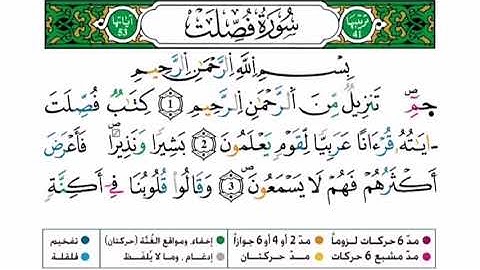 ترتيبها 41 سُورَةُ فُصِّلَتْ آياتها 53
بِسْمِ اللَّهِ الرَّحْمَٰنِ الرَّحِيمِ
حمٓ ۝ تَنزِيلٌ مِّنَ الرَّحْمَٰنِ الرَّحِيمِ ۝1 كِتَٰبٌ فُصِّلَتْ
ءَايَٰتُهُ قُرْءَانًا عَرَبِيًّا لِّقَوْمٍ يَعْلَمُونَ ۝2 بَشِيرًا وَنَذِيرًا فَأَعْرَضَ
أَكْثَرُهُمْ فَهُمْ لَا يَسْمَعُونَ ۝3 وَقَالُوا قُلُوبُنَا فِي أَكِنَّةٍ
مدّ 6 حركات لزوماً مدّ 2 أو 4 أو 6 جوازاً إخفاء، ومواقع الغُنَّة (حركتان) تفخيم
مدّ مشبع 6 حركات مدّ حركتان إدغام، وما لا يُلفظ قلقلة